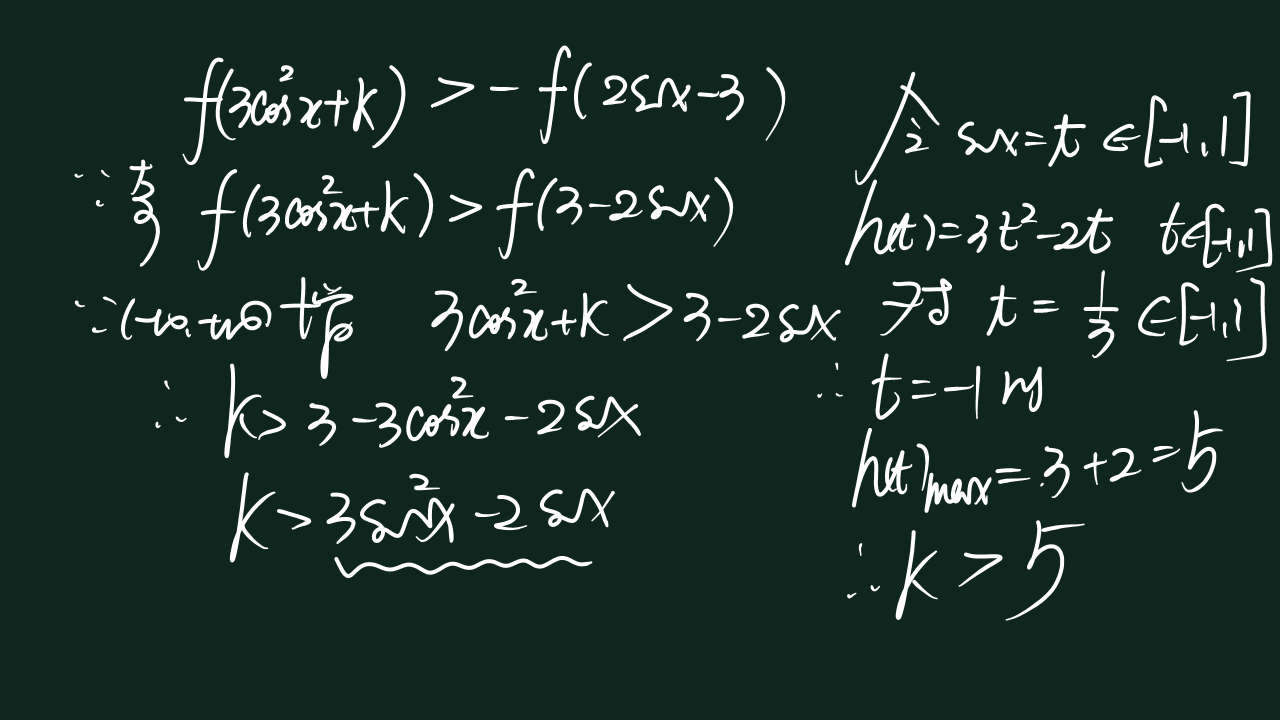 f(3cos²x+k) > -f(2sinx-3)
∵奇 f(3cos²x+k) > f(3-2sinx)
∵(-∞,+∞) 3cos²x+k > 3-2sinx
∴ k > 3-3cos²x-2sinx
k > 3sin²x-2sinx
令 sinx=t ∈[-1,1]
h(t)=3t²-2t t∈[-1,1]
对 t = 1/3 ∈[-1,1]
∴ t=-1时
h(t)max=3+2=5
∴ k > 5